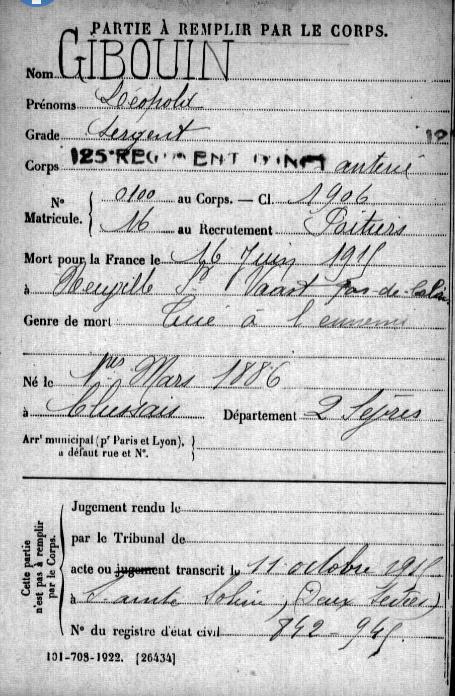 PARTIE À REMPLIR PAR LE CORPS.
Nom GIBOUIN
Prénoms Léopold
Grade Sergent
Corps 125e REGIMENT D'INFanterie
N° Matricule. { 0100 au Corps. — Cl. 1906
16 au Recrutement Poitiers
Mort pour la France le 16 Juin 1915
à Neuville St Vaast Pas-de-Calais
Genre de mort Tué à l'ennemi
Né le 1er Mars 1886
à Clussais Département 2 Sèvres
Arrt municipal (pr Paris et Lyon), à défaut rue et N°. }
Cette partie n'est pas à remplir par le Corps. {
Jugement rendu le
par le Tribunal de
acte ou jugement transcrit le 11 octobre 1915
à Sainte Soline, (Deux Sèvres)
N° du registre d'état civil 842-945.
101-708-1922. [26434]